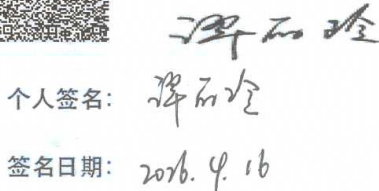 谭丽玲
个人签名：谭丽玲
签名日期：2026.4.16